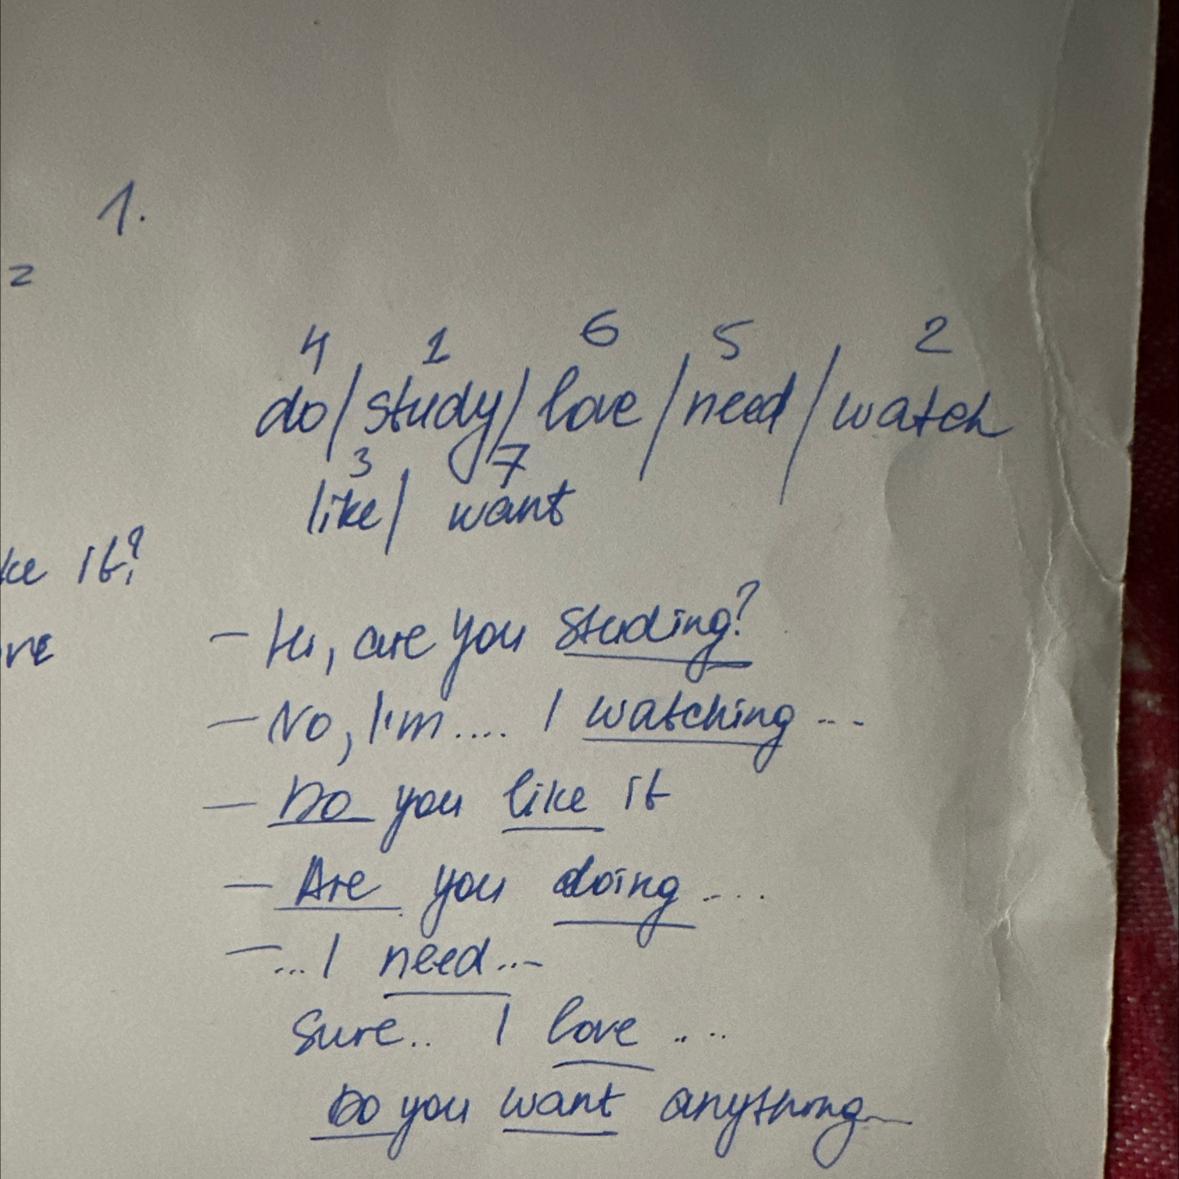 1.
2
4 1 6 5 2
do/study/love/need/watch
3 7
like/ want
ke it?
- Hi, are you studing?
- No, I'm.... I watching ...
- Do you like it
- Are you doing ...
-... I need...
Sure.. I love ...
Do you want anything